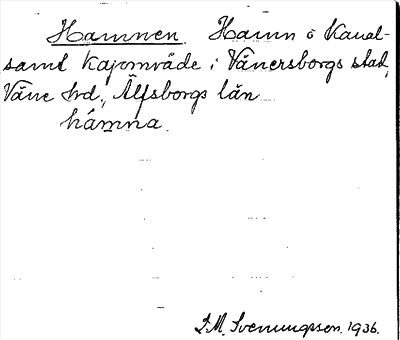 Hamnen. Hamn o Kanal-
samt Kajområde i Vänersborgs stad,
Väne hd., Älfsborgs län
hámna.
I.M. Svenungsson. 1936.